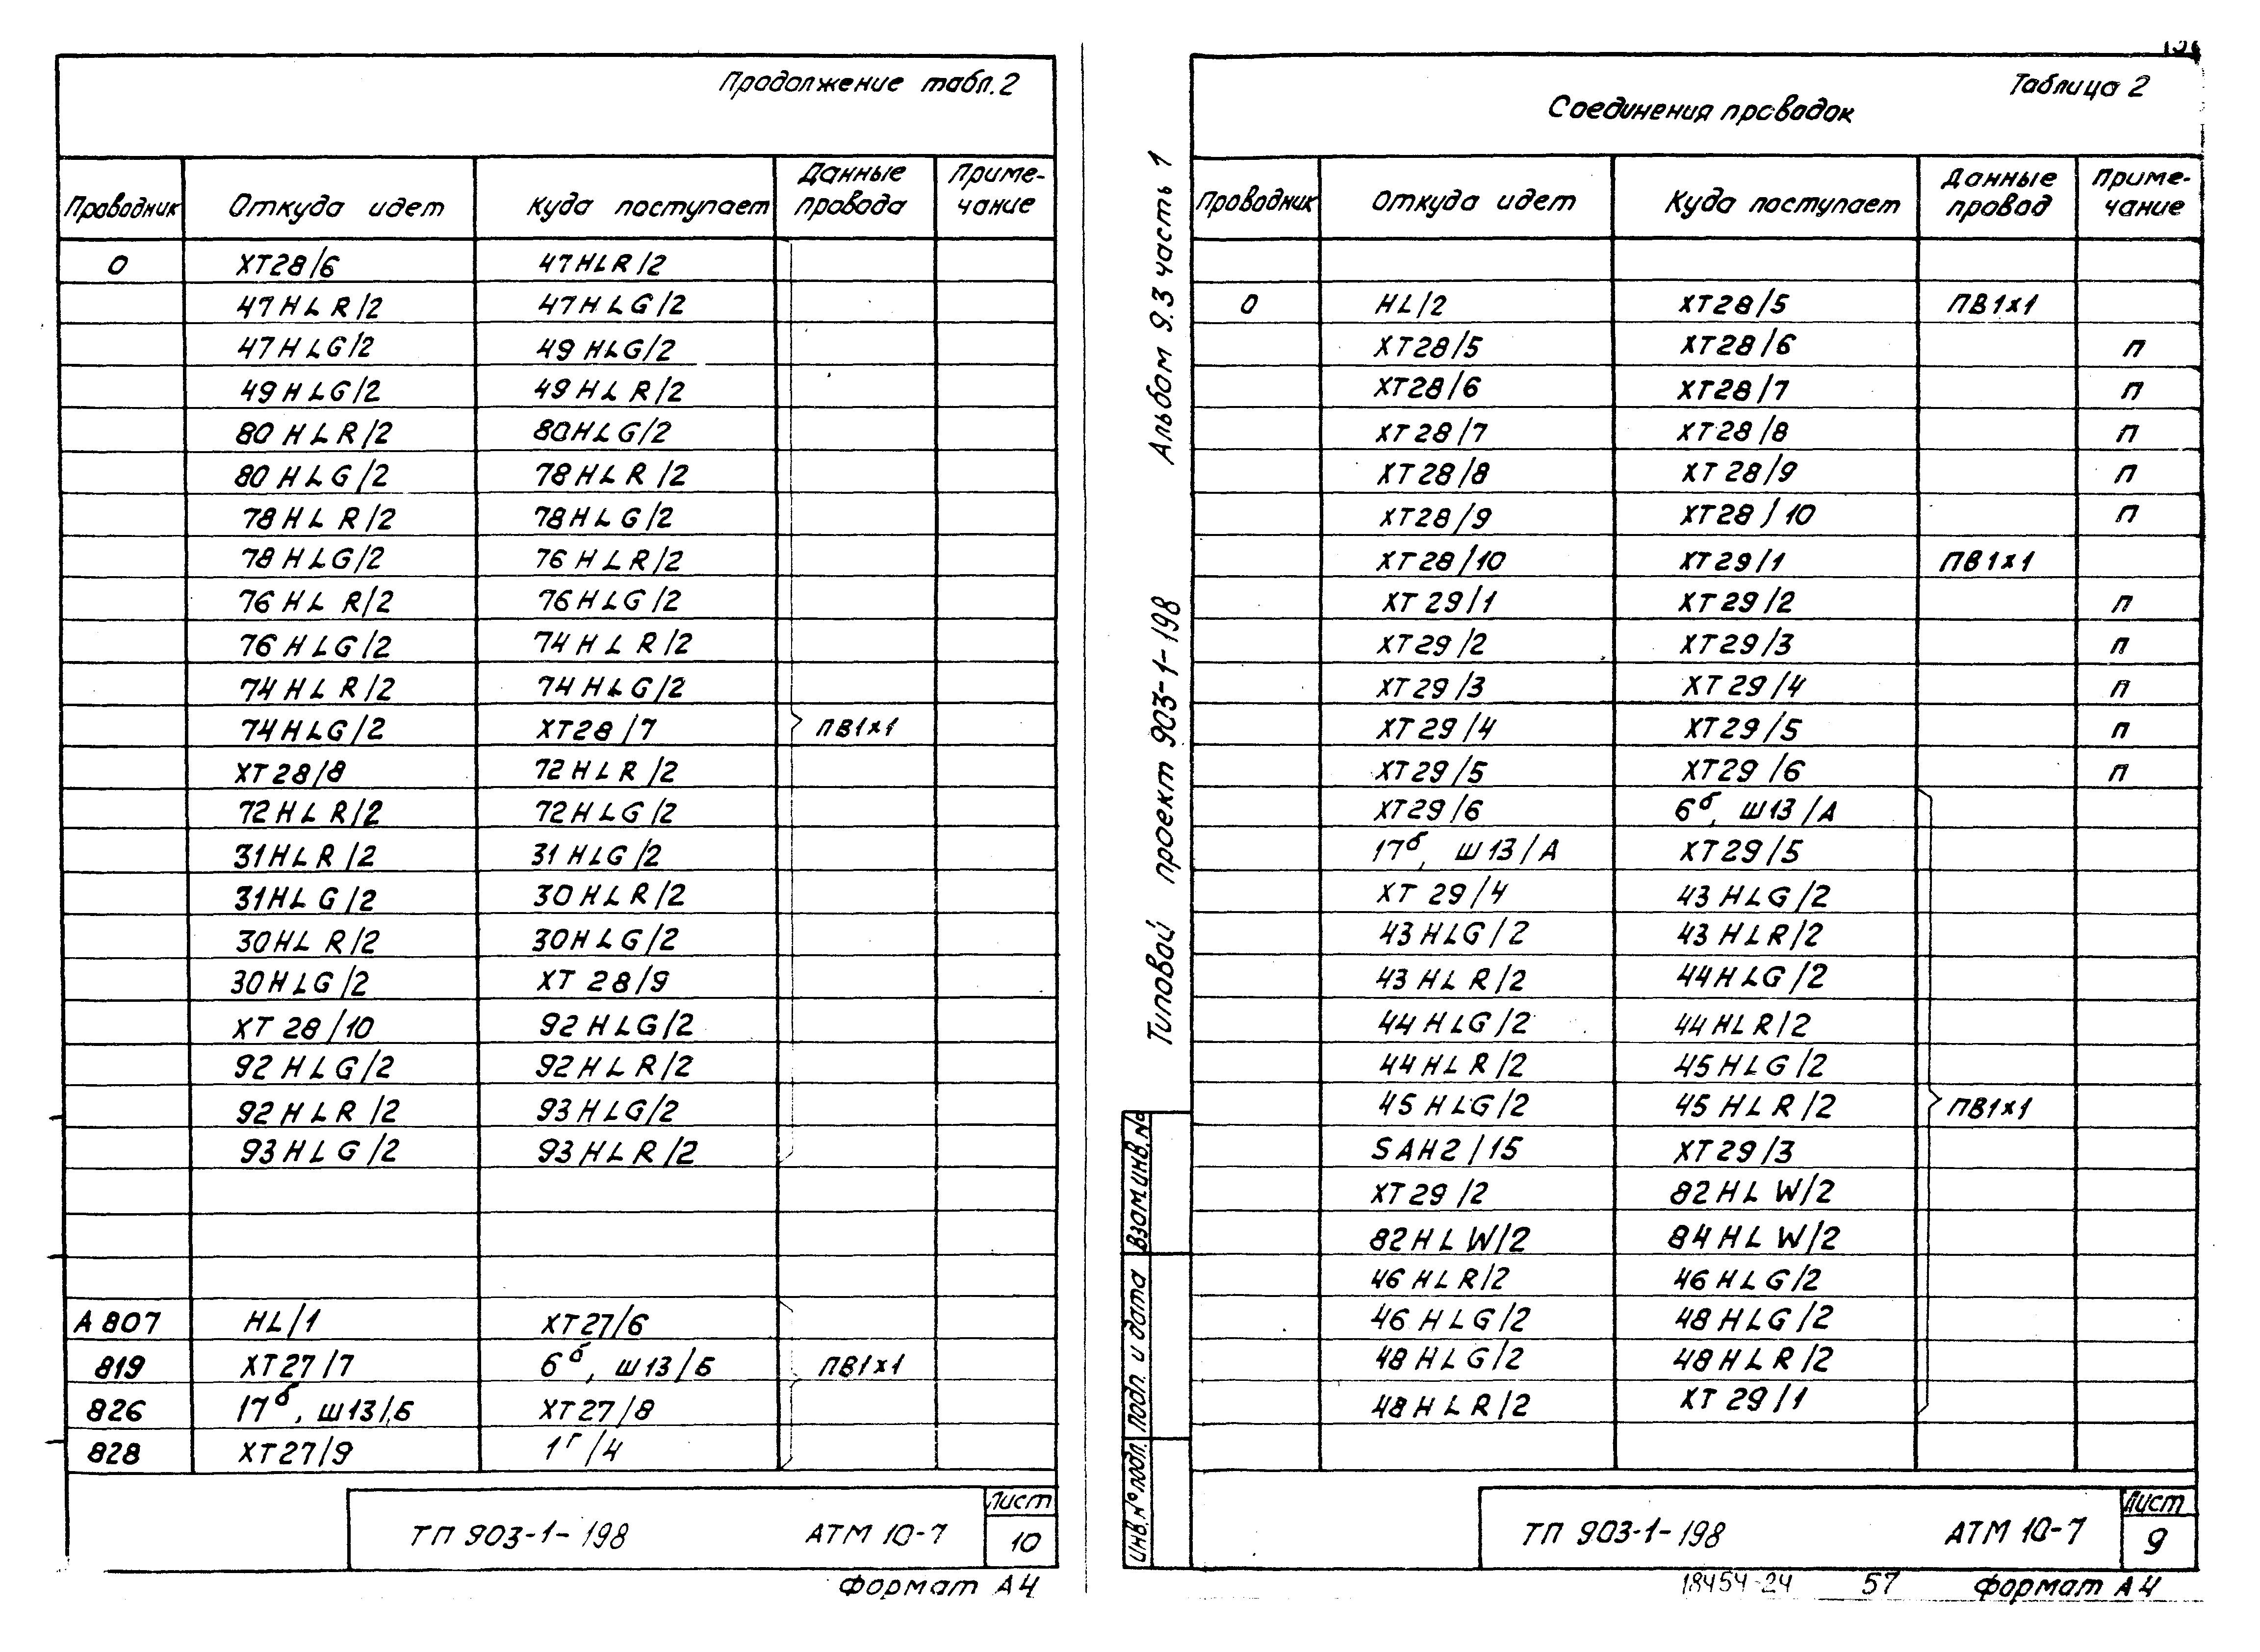 Продолжение табл.2
Проводник Откуда идет Куда поступает Данные провода Приме-чание
0 ХТ28/6 47HLR/2
47HLR/2 47HLG/2
47HLG/2 49HLG/2
49HLG/2 49HLR/2
80HLR/2 80HLG/2
80HLG/2 78HLR/2
78HLR/2 78HLG/2
78HLG/2 76HLR/2
76HLR/2 76HLG/2
76HLG/2 74HLR/2
74HLR/2 74HLG/2
74HLG/2 ХТ28/7 ПВ1х1
ХТ28/8 72HLR/2
72HLR/2 72HLG/2
31HLR/2 31HLG/2
31HLG/2 30HLR/2
30HLR/2 30HLG/2
30HLG/2 ХТ28/9
ХТ28/10 92HLG/2
92HLG/2 92HLR/2
92HLR/2 93HLG/2
93HLG/2 93HLR/2
А807 HL/1 ХТ27/6
819 ХТ27/7 6б, Ш13/Б ПВ1х1
826 17б, Ш13/Б ХТ27/8
828 ХТ27/9 1г/4
ТП 903-1-198 АТМ 10-7 Лист 10
Формат А4
Альбом 9.3 часть 1
Типовой проект 903-1-198
Взам инв.№
Подп. и дата
Инв.№ подл.
Таблица 2
Соединения проводок
Проводник Откуда идет Куда поступает Данные провод Приме-чание
0 HL/2 ХТ28/5 ПВ1х1
ХТ28/5 ХТ28/6 п
ХТ28/6 ХТ28/7 п
ХТ28/7 ХТ28/8 п
ХТ28/8 ХТ28/9 п
ХТ28/9 ХТ28/10 п
ХТ28/10 ХТ29/1 ПВ1х1
ХТ29/1 ХТ29/2 п
ХТ29/2 ХТ29/3 п
ХТ29/3 ХТ29/4 п
ХТ29/4 ХТ29/5 п
ХТ29/5 ХТ29/6 п
ХТ29/6 6б, Ш13/А
17б, Ш13/А ХТ29/5
ХТ29/4 43HLG/2
43HLG/2 43HLR/2
43HLR/2 44HLG/2
44HLG/2 44HLR/2
44HLR/2 45HLG/2
45HLG/2 45HLR/2 ПВ1х1
SAH2/15 ХТ29/3
ХТ29/2 82HLW/2
82HLW/2 84HLW/2
46HLR/2 46HLG/2
46HLG/2 48HLG/2
48HLG/2 48HLR/2
48HLR/2 ХТ29/1
ТП 903-1-198 АТМ 10-7 Лист 9
18454-24 57 Формат А4